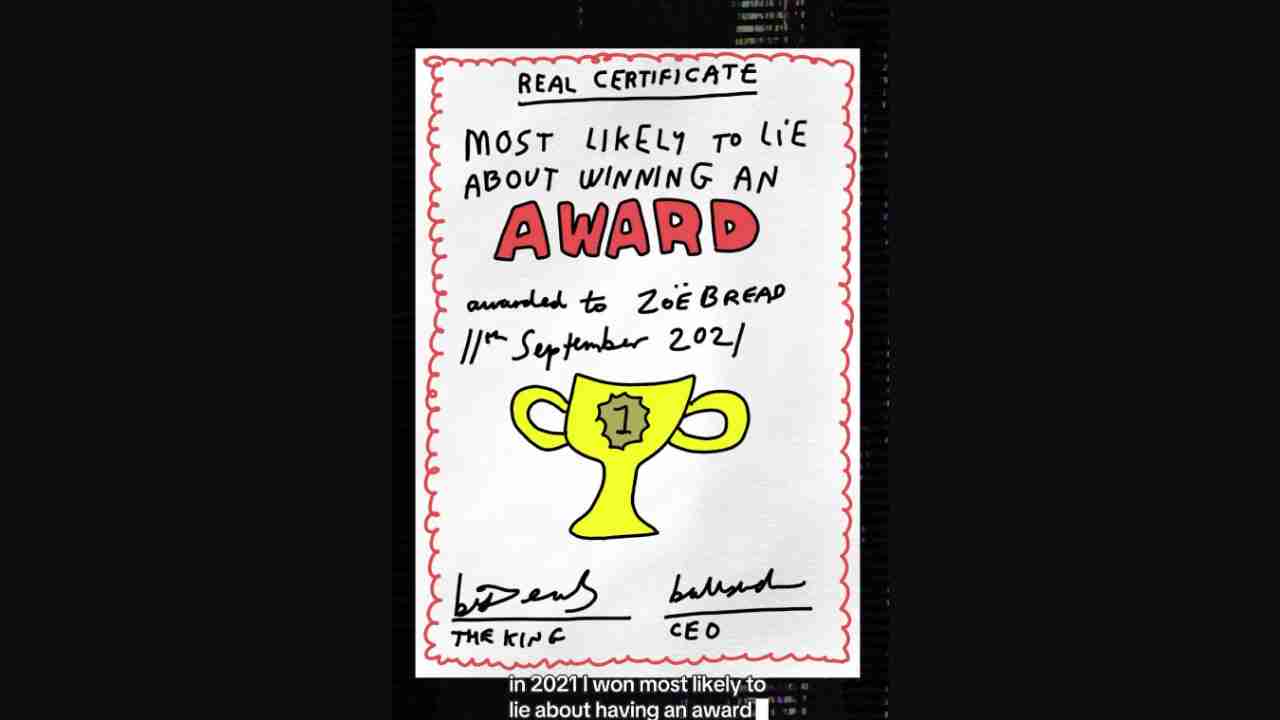 REAL CERTIFICATE
MOST LIKELY TO LiE
ABOUT WINNING AN
AWARD
awarded to ZOË BREAD
11th September 2021
1
THE KING
CEO
in 2021 I won most likely to
lie about having an award